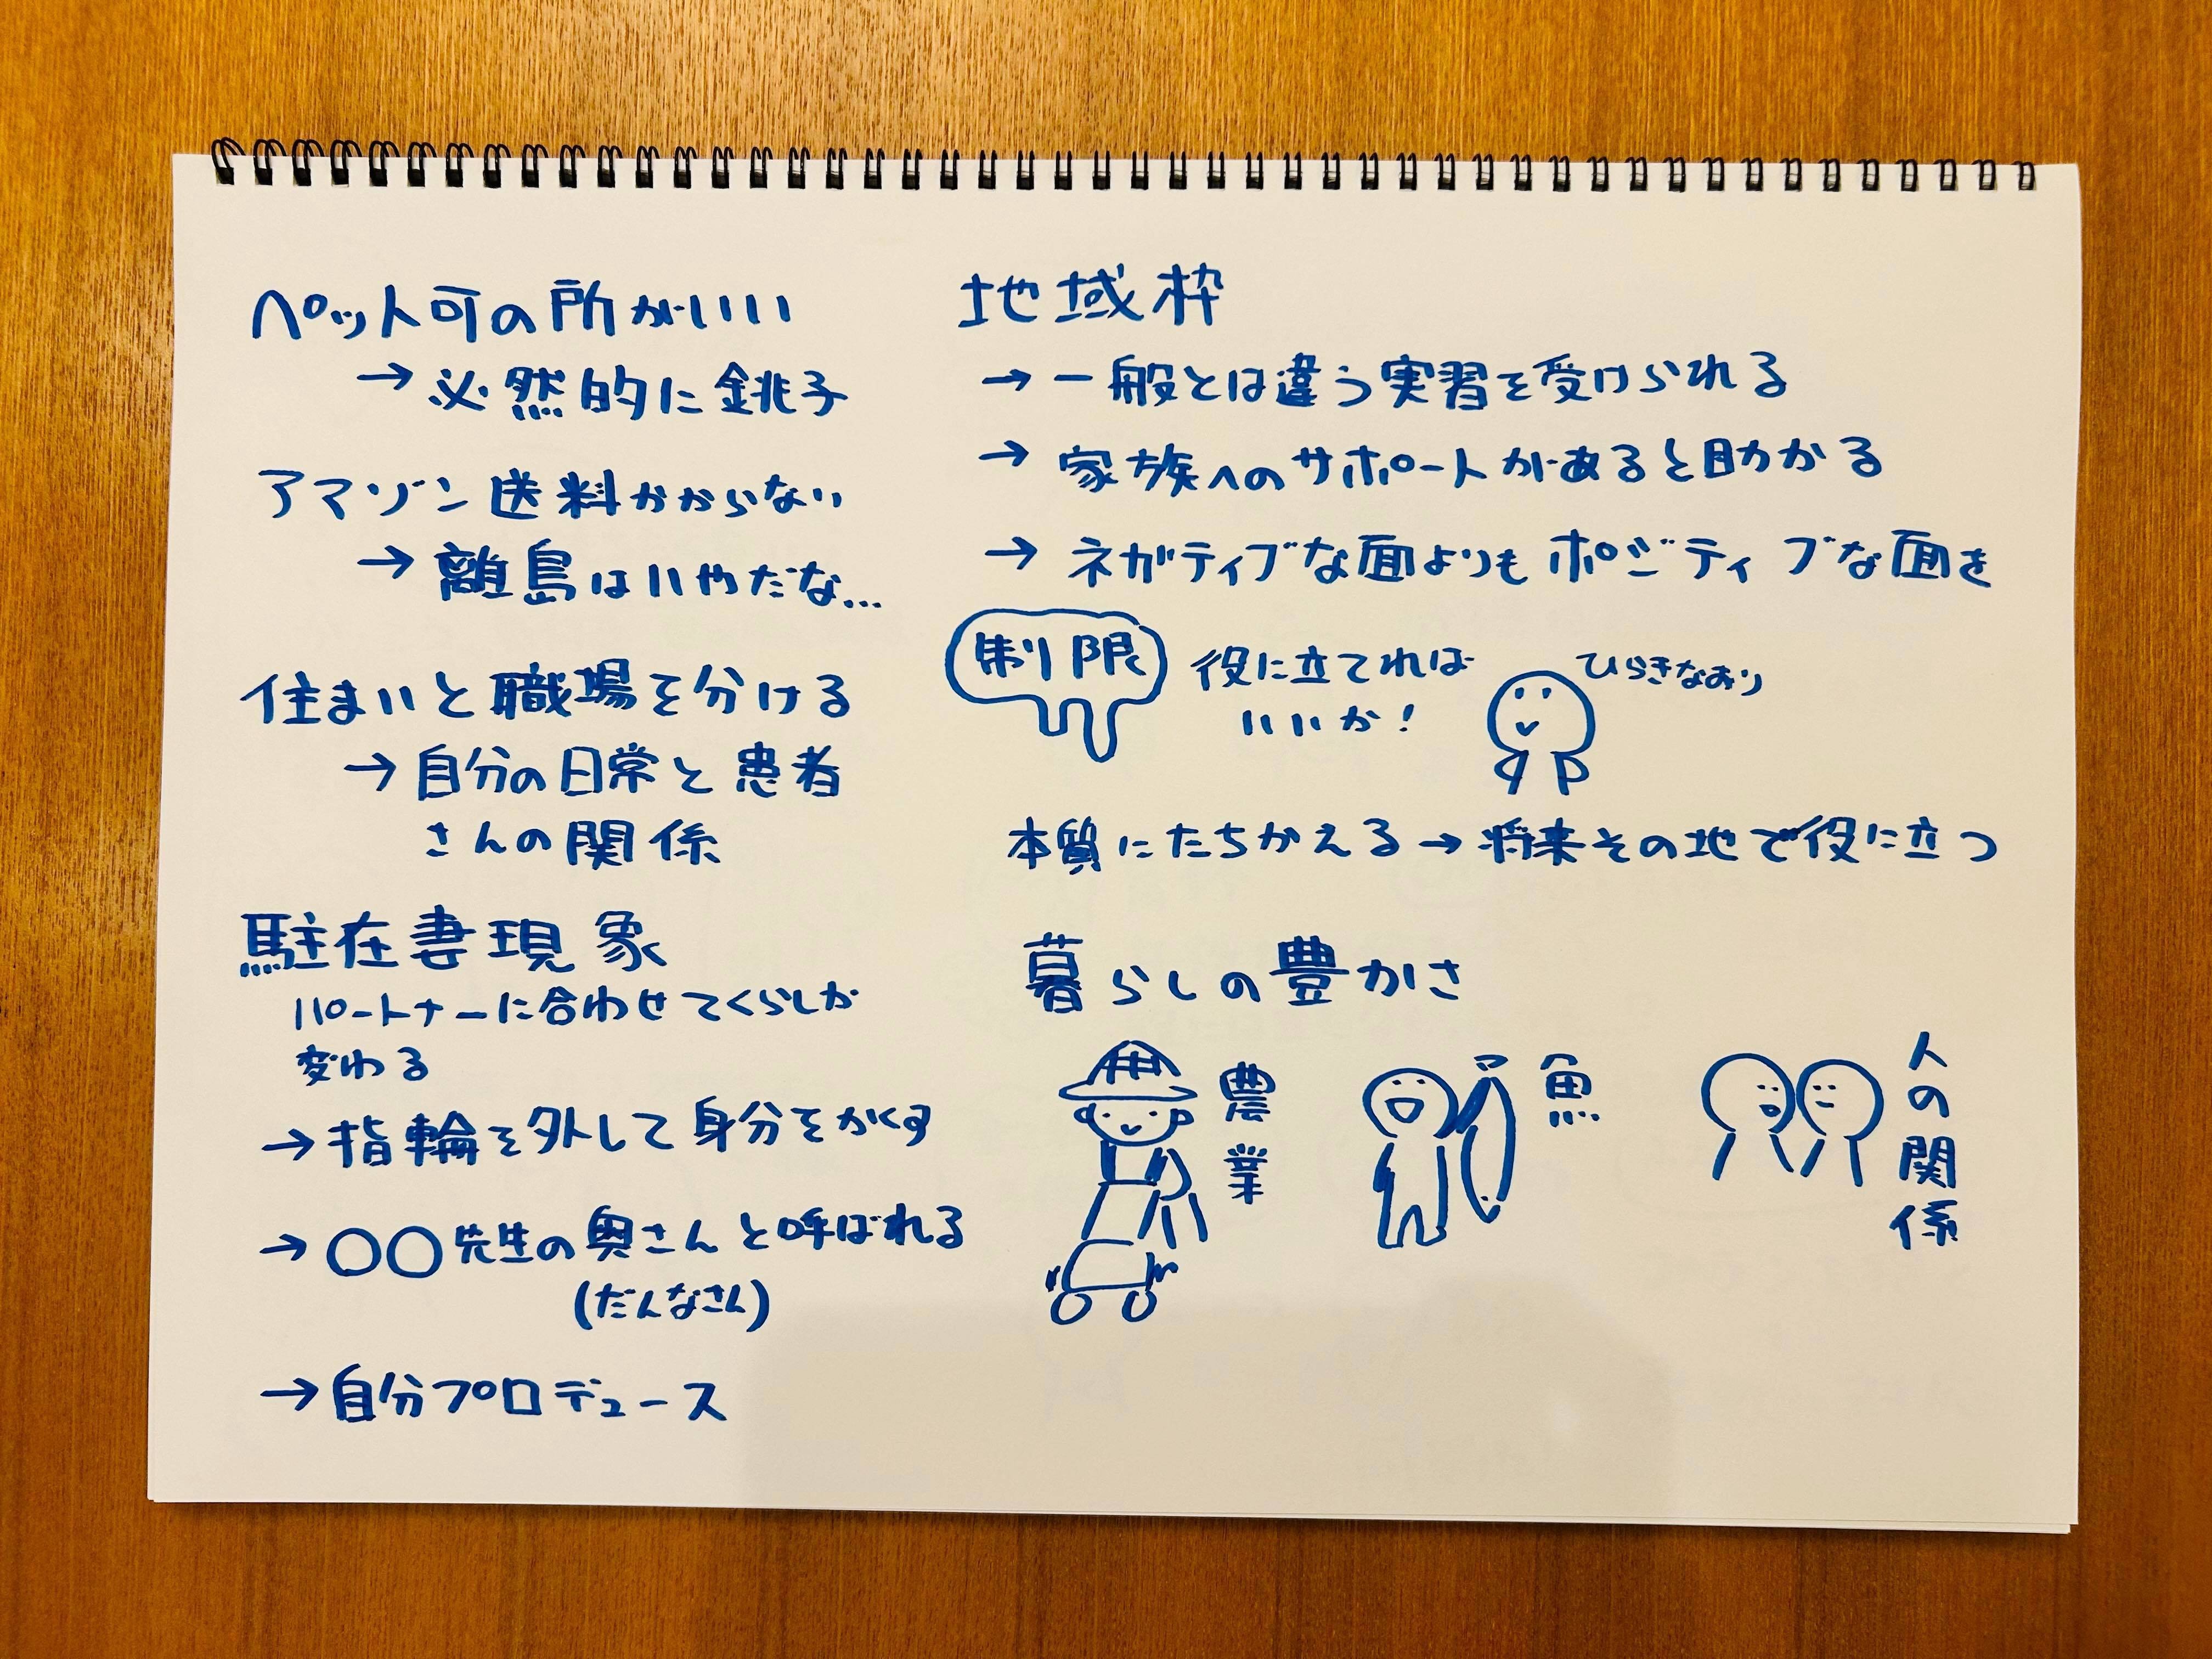 ペット可の所がいい
→必然的に銚子
アマゾン送料かからない
→離島はいやだな…
住まいと職場を分ける
→自分の日常と患者
さんの関係
駐在妻現象
パートナーに合わせてくらしが
変わる
→指輪を外して身分をかくす
→〇〇先生の奥さんと呼ばれる
(だんなさん)
→自分プロデュース
地域枠
→一般とは違う実習を受けられる
→家族へのサポートがあると助かる
→ネガティブな面よりもポジティブな面を
制限
役に立てれば
いいか!
ひらきなおり
本質にたちかえる→将来その地で役に立つ
暮らしの豊かさ
農業
魚
人の関係